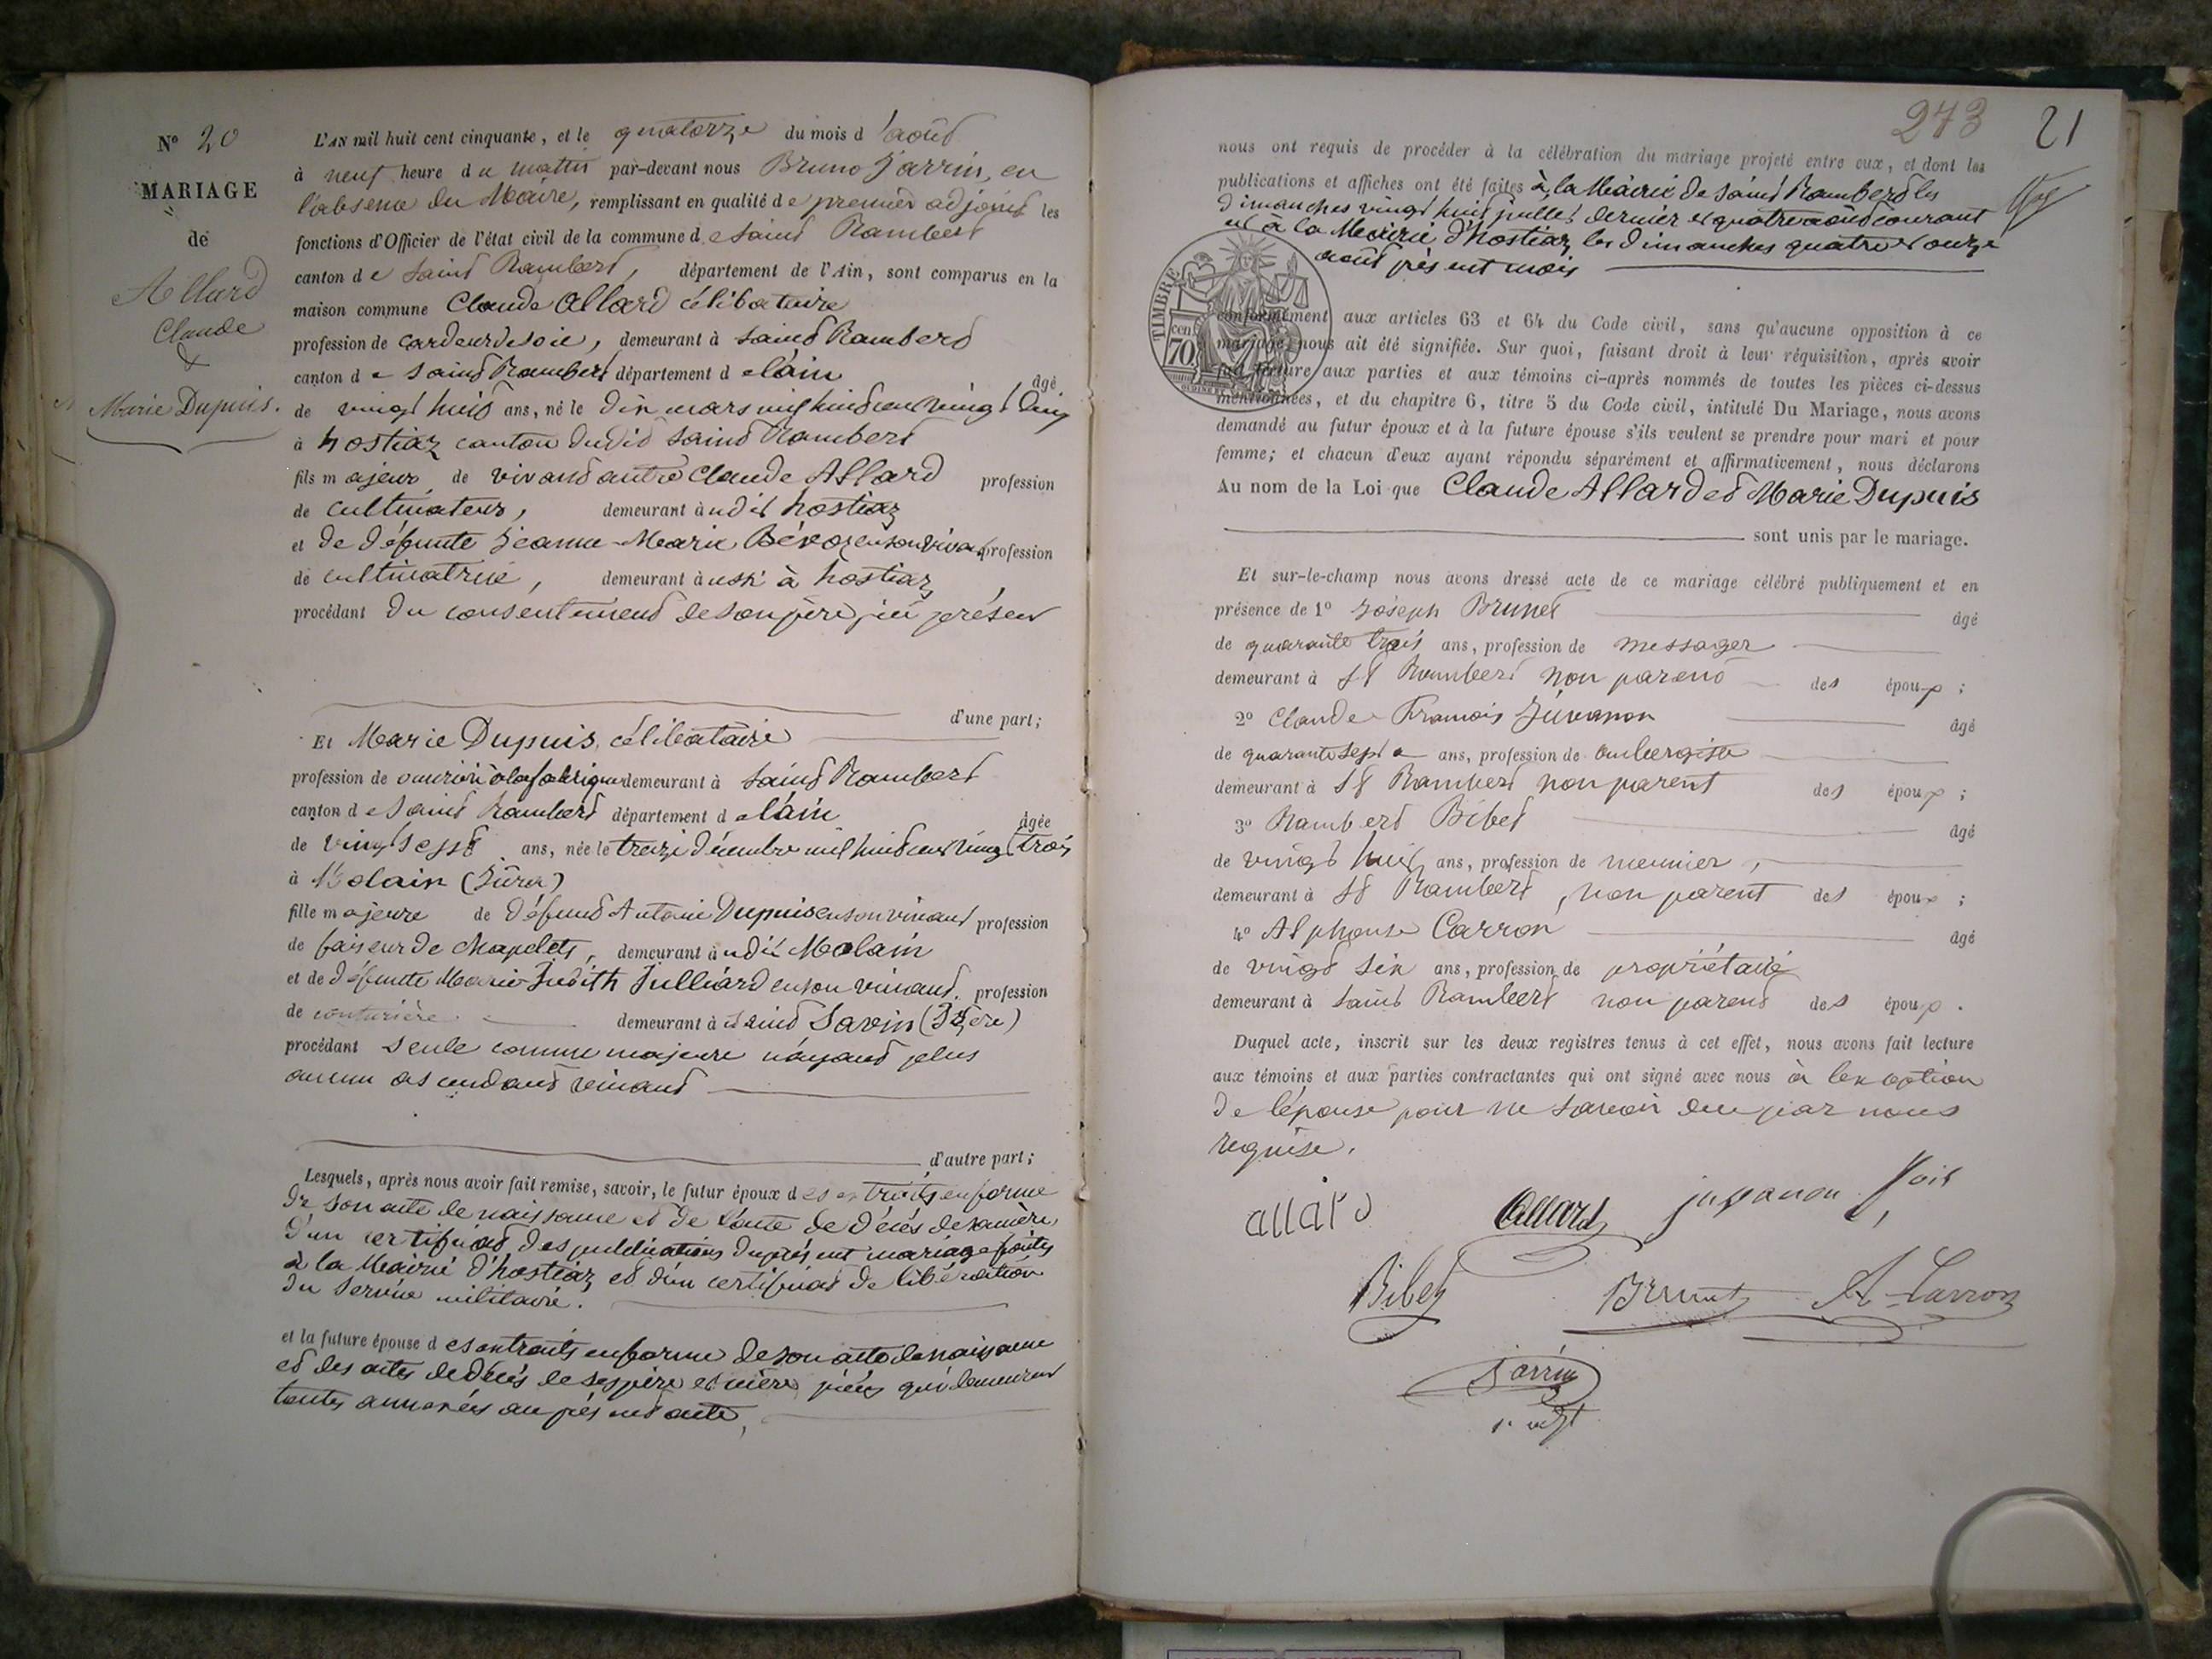 N° 20
MARIAGE
de
Allard
Claude
&
Marie Dupuis.
L'AN mil huit cent cinquante, et le quatorze du mois d'août
à neuf heure du matin par-devant nous Bruno Jarrin, en
l'absence du Maire, remplissant en qualité de premier adjoint les
fonctions d'Officier de l'état civil de la commune de Saint Rambert
canton de Saint Rambert, département de l'Ain, sont comparus en la
maison commune Claude Allard célibataire
profession de cardeur de soie, demeurant à Saint Rambert
canton de Saint Rambert département de l'ain âgé
de vingt huit ans, né le dix mars mil huit cent vingt
à hostiaz canton dudit Saint Rambert
fils majeur de vivant autre Claude Allard profession
de cultivateur, demeurant àudit hostiaz
et de défunte Jeanne-Marie en son vivant profession
de cultivatrice, demeurant àussi à hostiaz
procédant du consentement de son père, ici présent
d'une part;
Et Marie Dupuis, célibataire
profession de ouvrière à la fabrique demeurant à Saint Rambert
canton de Saint Rambert département de l'ain âgée
de vingt sept ans, née le treize décembre mil huit cent vingt trois
à Molain (Jura)
fille majeure de défunt Antoine Dupuis en son vivant profession
de faiseur de chapelets, demeurant àudit Molain
et de défunte Marie-Judith Julliard en son vivant profession
de couturière demeurant à Saint Savin (Isère)
procédant seule comme majeure n'ayant plus
aucun ascendant vivant
d'autre part;
Lesquels, après nous avoir fait remise, savoir, le futur époux des extraits en forme
de son acte de naissance et de l'acte de décès de sa mère,
d'un certificat des publications du présent mariage faites
à la Mairie d'hostiaz et d'un certificat de libération
du service militaire.
et la future épouse des extraits en forme de son acte de naissance
et des actes de décès de ses père et mère, pièces qui demeurent
toutes annexées au présent acte,
273 21
nous ont requis de procéder à la célébration du mariage projeté entre eux, et dont les
publications et affiches ont été faites à la Mairie de Saint Rambert les
dimanches vingt huit juillet dernier et quatre août courant
et à la Mairie d'hostiaz les dimanches quatre et onze
août présent mois
TIMBRE
cen
70
conformément aux articles 63 et 64 du Code civil, sans qu'aucune opposition à ce
mariage nous ait été signifiée. Sur quoi, faisant droit à leur réquisition, après avoir
fait lecture aux parties et aux témoins ci-après nommés de toutes les pièces ci-dessus
mentionnées, et du chapitre 6, titre 5 du Code civil, intitulé Du Mariage, nous avons
demandé au futur époux et à la future épouse s'ils veulent se prendre pour mari et pour
femme; et chacun d'eux ayant répondu séparément et affirmativement, nous déclarons
Au nom de la Loi que Claude Allard et Marie Dupuis
sont unis par le mariage.
Et sur-le-champ nous avons dressé acte de ce mariage célébré publiquement et en
présence de 1° Joseph Brunet âgé
de quarante trois ans, profession de messager
demeurant à St Rambert non parent des époux;
2° Claude-François Juvanon âgé
de quarante sept ans, profession de aubergiste
demeurant à St Rambert non parent des époux;
3° Rambert Bibet âgé
de vingt huit ans, profession de meunier,
demeurant à St Rambert, non parent des époux;
4° Alphonse Carron âgé
de vingt six ans, profession de propriétaire
demeurant à Saint Rambert non parent des époux.
Duquel acte, inscrit sur les deux registres tenus à cet effet, nous avons fait lecture
aux témoins et aux parties contractantes qui ont signé avec nous à l'exception
de l'épouse pour ne savoir de ce par nous
requise.
allard Allard juvanon
Bibet Brunet A-Carron
Jarrin
1er adjt